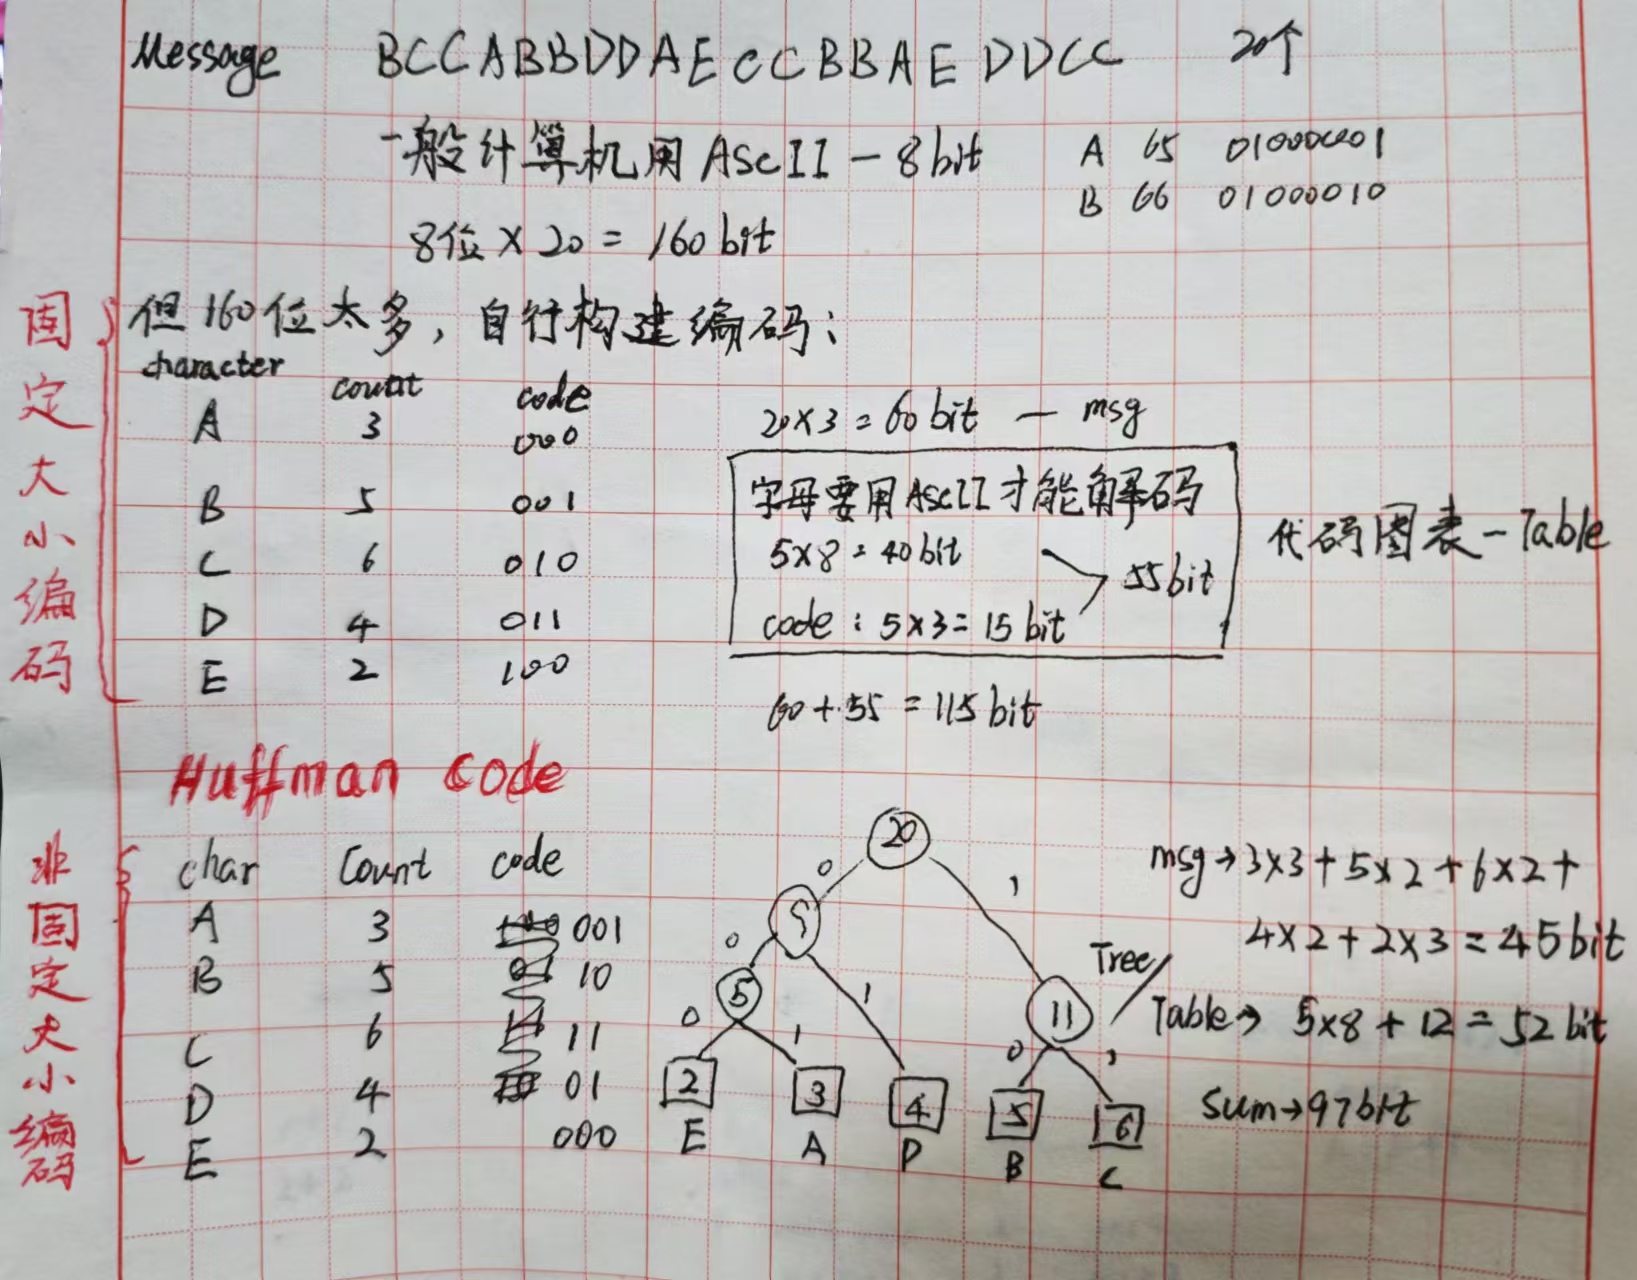 Message BCCABBDDAECCBBAEDDCC 20个
一般计算机用ASCII－8bit A 65 01000001
B 66 01000010
8位×20=160bit
固定大小编码
但160位太多，自行构建编码：
character count code
A 3 000
B 5 001
C 6 010
D 4 011
E 2 100
20×3=60bit — msg
字母要用ASCII才能解码
5×8=40bit
55bit
code：5×3=15bit
代码图表－Table
60+55=115bit
Huffman code
非固定大小编码
char Count code
A 3 001
B 5 10
C 6 11
D 4 01
E 2 000
20
0 1
9
0 1
5 11
0 1 0 1
2 3 4 5 6
E A D B C
msg→3×3+5×2+6×2+
4×2+2×3=45bit
Tree/
Table→ 5×8+12=52bit
Sum→97bit